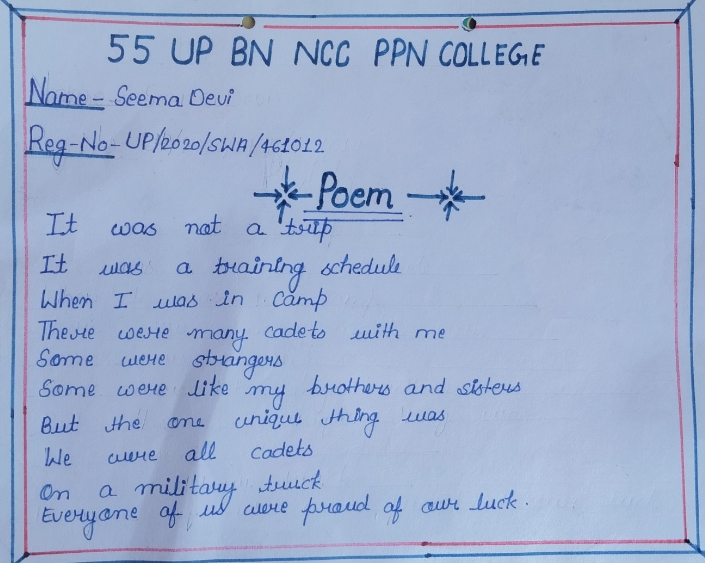 55 UP BN NCC PPN COLLEGE
Name- Seema Devi
Reg-No- UP/2020/SWA/461012
Poem
It was not a trip
It was a training schedule
When I was in camp
There were many cadets with me
Some were strangers
Some were like my brothers and sisters
But the one unique thing was
We were all cadets
On a military truck
Everyone of us were proud of our luck.